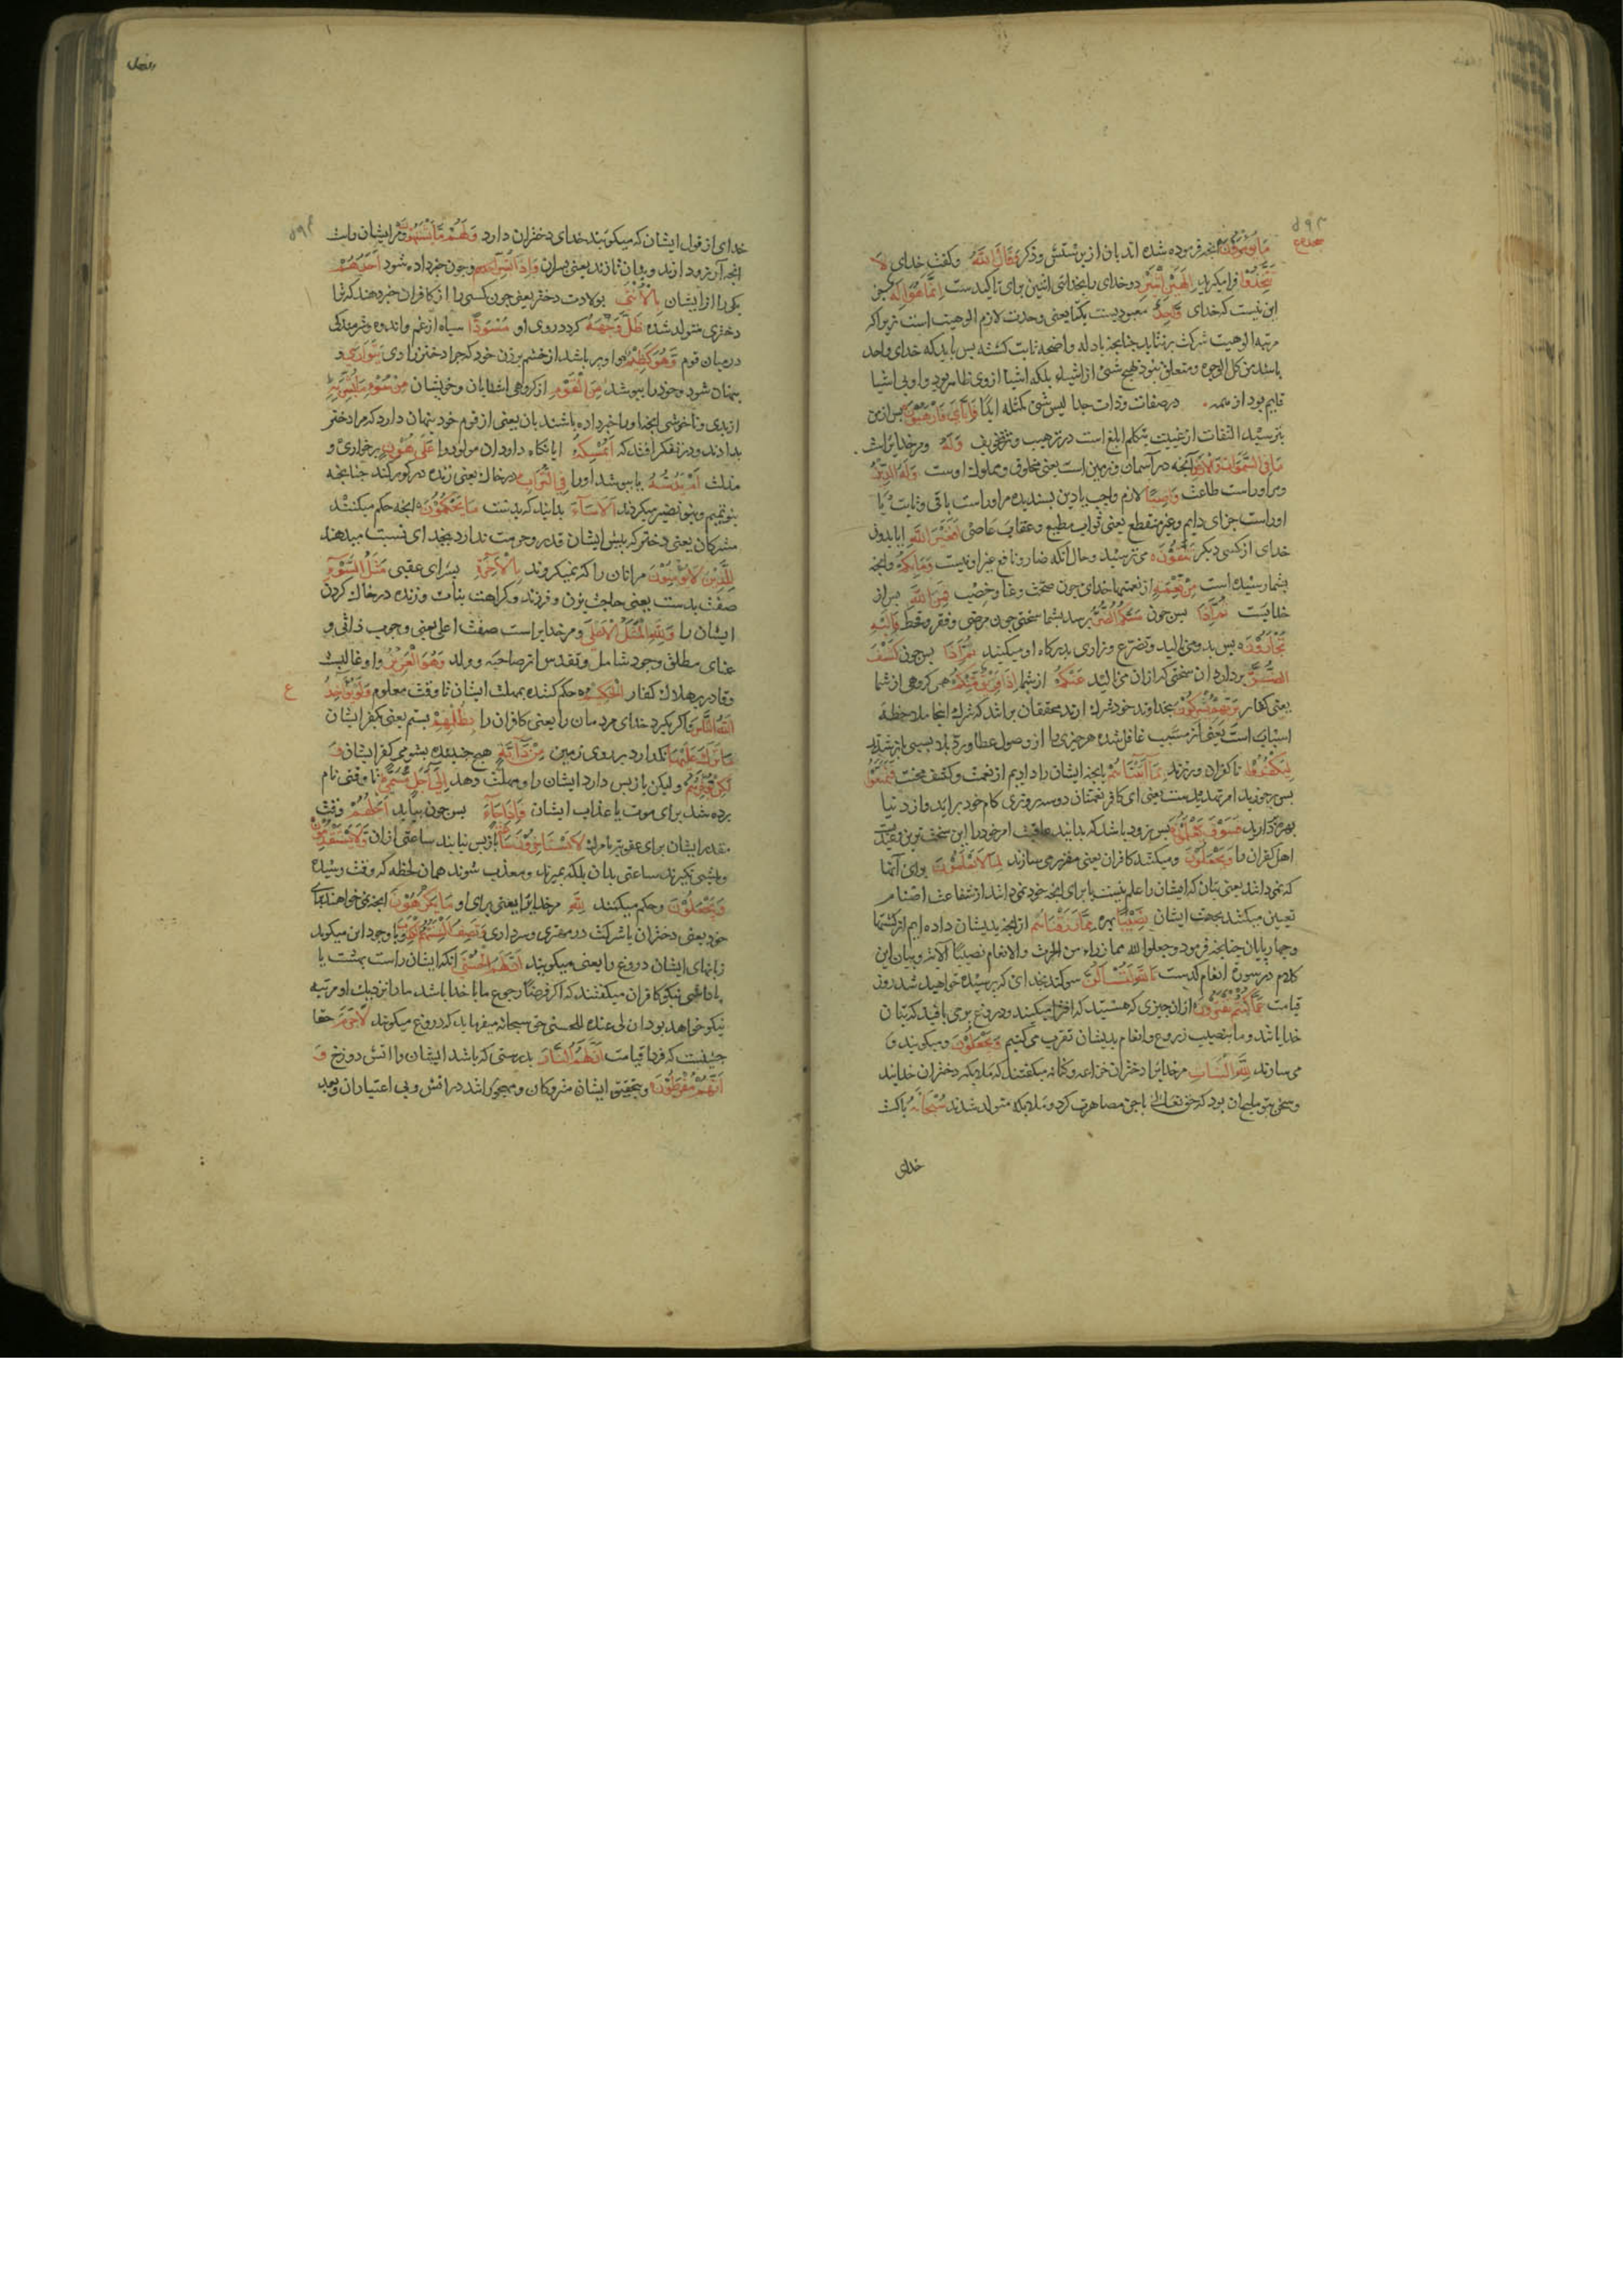 مَا يُؤْمَرُونَ آنچه فرموده شده اند بان از پرستش و ذكر وَقَالَ اللّٰهُ وكفت خدای لَا
تَتَّخِذُوا فرا مكيريد اِلٰهَيْنِ اثْنَيْنِ دو خدای را بخدائی اثنين برای تاكيدست اِنَّمَا هُوَ اِلٰهٌ جز
اين نيست كه خدای وَاحِدٌ معبوديست يكتا يعنی وحدت لازم الوهيت است زيرا كه
مرتبه الوهيت شركت بر نتابد چنانچه بادله واضحه ثابت كشته پس بايد كه خدای واحد
باشد من كل الوجوه ومتعلق نبود بهيچ شئ از اشياء بلكه اشيا از وی ظاهر بود و او بی اشيا
قايم بود از همه در صفات وذات جدا ليس شئ كمثله ابدًا فَاِيَّايَ فَارْهَبُونِ پس از من
بترسيد التفات از غيبت بتكلم ابلغ است در ترهيب وتخويف وَلَهُ ومر خدايراست
مَا فِي السَّمٰوَاتِ وَالْاَرْضِ آنچه در آسمان وزمين است يعنی مخلوق ومملوك اوست وَلَهُ الدِّينُ
ومر اوراست طاعت وَاصِبًا لازم واجب يا دين پسنديده مر اوراست باقی وثابت يا
اوراست جزای دايم وغير منقطع يعنی ثواب مطيع وعقاب عاصی اَفَغَيْرَ اللّٰهِ ايا بدون
خدای از كسی ديكر تَتَّقُونَ می ترسيد وحال آنكه ضار ونافع غير او نيست وَمَا بِكُمْ وانچه
بشما رسيده است مِنْ نِعْمَةٍ از نعمتها خدای چون صحت وغنا وخصب فَمِنَ اللّٰهِ پس از
خدايست ثُمَّ اِذَا پس چون مَسَّكُمُ الضُّرُّ برسد بشما سختی چون مرض وفقر وقحط فَاِلَيْهِ
تَجْـَٔرُونَ پس بدو می ناليد وتضرع وزاری بدركاه او ميكنيد ثُمَّ اِذَا پس چون كَشَفَ
الضُّرَّ بردارد ان سختی كه ازان می ناليد عَنْكُمْ از شما اِذَا فَرِيقٌ مِنْكُمْ همه كروهی از شما
يعنی كفار بِرَبِّهِمْ يُشْرِكُونَ بخداوند خود شرك ارند محققان برانند كه شرك اينجا ملاحظه
اسباب است يعنی از مسبب غافل شده هر چيزی را از وصول عطا و رد بلا بسببی باز بندند
لِيَكْفُرُوا تا كفران ورزند بِمَا اٰتَيْنَاهُمْ بانچه ايشان را داديم از نعمت وكشف محنت فَتَمَتَّعُوا
پس برخوريد امر تهديدست يعنی ای كافر نعمتان دو سه روزی كام خود برانيد واز دنيا
بهره داريد فَسَوْفَ تَعْلَمُونَ پس زود باشد كه بدانيد عاقبت امر خود را اين سخت ترين وعيدست
اهل كفران را وَيَجْعَلُونَ وميكنند كافران يعنی مقرر می سازند لِمَا لَا يَعْلَمُونَ برای آنها
كه نمی دانند يعنی بتان كه ايشان را علم نيست يا برای انچه خود نمی دانند از شفاعت اصنام
تعيين ميكنند بجهت ايشان نَصِيبًا بهره مِمَّا رَزَقْنَاهُمْ از انچه بديشان داده ايم از كشتها
وچهار پايان چنانچه فرمود وجعلوا لله مما ذراء من الحرث والانعام نصيبًا الآيه وبيان اين
كلام در سوره انعام كذشت تَاللّٰهِ لَتُسْـَٔلُنَّ سوكند بخدای كه پرسيده خواهيد شد روز
قيامت عَمَّا كُنْتُمْ تَفْتَرُونَ از ان چيزی كه هستيد كه افترا ميكنيد ودروغ بر می بافيد كه بتان
خدايانند وما بنصيب زروع وانعام بديشان تقرب می كنيم وَيَجْعَلُونَ وميكويند و
می سازند لِلّٰهِ الْبَنَاتِ مر خدايرا دختران خزاعه وكنانه ميكفتند كه ملائكه دختران خدايند
وسخن بنو مليح ان بود كه حق تعالی با جن مصاهرت كرد وملائكه متولد شدند سُبْحَانَهُ پاكست
خدای
خدای از قول ايشان كه ميكويند خدای دختران دارد وَلَهُمْ مَا يَشْتَهُونَ ومر ايشان راست
انچه آرزو دارند وبدان نازند يعنی پسران وَاِذَا بُشِّرَ وچون خبر داده شود اَحَدُهُمْ
يكی را از ايشان بِالْاُنْثٰى بولادت دختر يعنی چون كسی را از كافران خبر دهند كه ترا
دختری متولد شده ظَلَّ وَجْهُهُ كردد روی او مُسْوَدًّا سياه از غم واندوه وشرمندكی
درميان قوم وَهُوَ كَظِيمٌ واو پر باشد از خشم بر زن خود كه چرا دختر زادی يَتَوَارٰى و
پنهان شود وخود را بپوشد مِنَ الْقَوْمِ از كروهی اشنايان وخويشان مِنْ سُوءِ مَا بُشِّرَ بِهِ
از بدی وناخوشی انچه او را خبر داده باشند بان يعنی از قوم خود پنهان دارد كه مرا دختر
بدادند ودر تفكر افتد كه اَيُمْسِكُهُ ايا نكاه دارد ان مولود را عَلٰى هُونٍ بر خواری و
مذلت اَمْ يَدُسُّهُ يا بپوشد او را فِي التُّرَابِ در خاك يعنی زنده در كور كند چنانچه
بنو تميم وبنو نضير ميكردند اَلَا سَآءَ بدانيد كه بدست مَا يَحْكُمُونَ انچه حكم ميكنند
مشركان يعنی دختر كه پيش ايشان قدر وحرمت ندارد بخدای نسبت ميدهند
لِلَّذِينَ لَا يُؤْمِنُونَ مر انان را كه نميكروند بِالْاٰخِرَةِ بسرای عقبی مَثَلُ السَّوْءِ
صفت بدست يعنی حاجت بزن وفرزند وكراهت بنات وزنده در خاك كردن
ايشان را وَلِلّٰهِ الْمَثَلُ الْاَعْلٰى ومر خدايراست صفت اعلی يعنی وجوب ذاتی و
غنای مطلق وجود شامل وتقدس از صاحبه وولد وَهُوَ الْعَزِيزُ واو غالبست
وقادر بر هلاك كفار الْحَكِيمُ حكم كننده بمهلت ايشان تا وقت معلوم وَلَوْ يُؤَاخِذُ
اللّٰهُ النَّاسَ واكر بكيرد خدای مردمان را يعنی كافران را بِظُلْمِهِمْ بستم يعنی بكفر ايشان
مَا تَرَكَ عَلَيْهَا نكذارد بر روی زمين مِنْ دَآبَّةٍ هيچ جنبنده بشومی كفر ايشان وَ
لٰكِنْ يُؤَخِّرُهُمْ وليكن باز پس دارد ايشان را ومهلت دهد اِلٰى اَجَلٍ مُسَمًّى تا وقتی نام
برده شد برای موت يا عذاب ايشان فَاِذَا جَآءَ پس چون بيايد اَجَلُهُمْ وقت
مقدر ايشان برای عقوبت يا مرك لَا يَسْتَاْخِرُونَ سَاعَةً باز پس نيايند ساعتی ازان وَلَا يَسْتَقْدِمُونَ
وپيشی نكيرند ساعتی بدان بلكه بميرند ومعذب شوند همان لحظه كه وقت رسيده
وَيَجْعَلُونَ وحكم ميكنند لِلّٰهِ مر خدايرا يعنی برای او مَا يَكْرَهُونَ انچه نمی خواهند برای
خود يعنی دختران يا شركت در مهتری وسرداری وَتَصِفُ اَلْسِنَتُهُمُ الْكَذِبَ وبا وجود اين ميكويد
زبانهای ايشان دروغ را يعنی ميكويند اَنَّ لَهُمُ الْحُسْنٰى انكه ايشان راست بهشت يا
پاداشی نيكو كافران ميكفتند كه اكر فرضًا رجوع ما با خدا باشد ما را نزديك او مرتبه
نيكو خواهد بود ان لی عنده للحسنی حق سبحانه ميفرمايد كه دروغ ميكويند لَا جَرَمَ حقا
كه فردا قيامت اَنَّ لَهُمُ النَّارَ بدرستی كه باشد ايشان را اتش دوزخ وَ
اَنَّهُمْ مُفْرَطُونَ وبتحقيق ايشان متروكان ومهجورانند در اتش وبی اعتباران وبعد